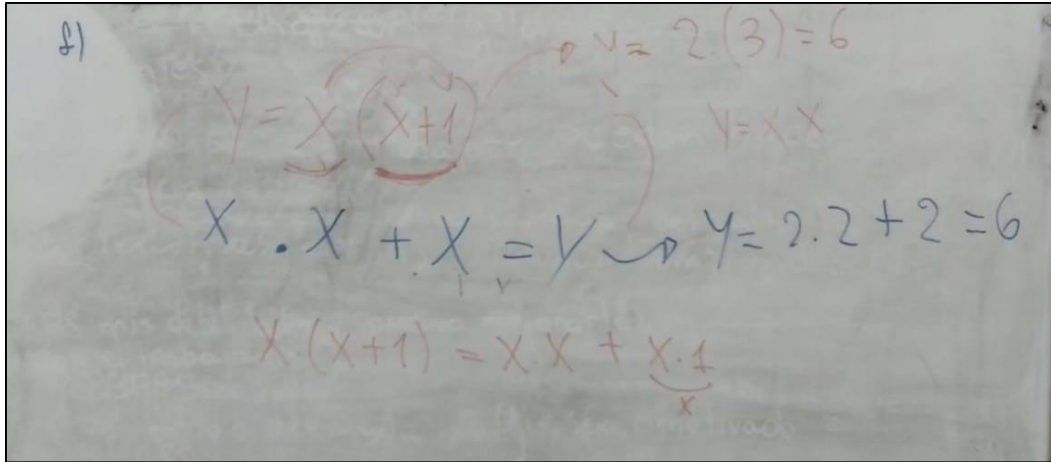 f)
y = 2.(3) = 6
y = x (x+1)
y = x.x
x . x + x = y → y = 2.2 + 2 = 6
x.(x+1) = x.x + x.1
x